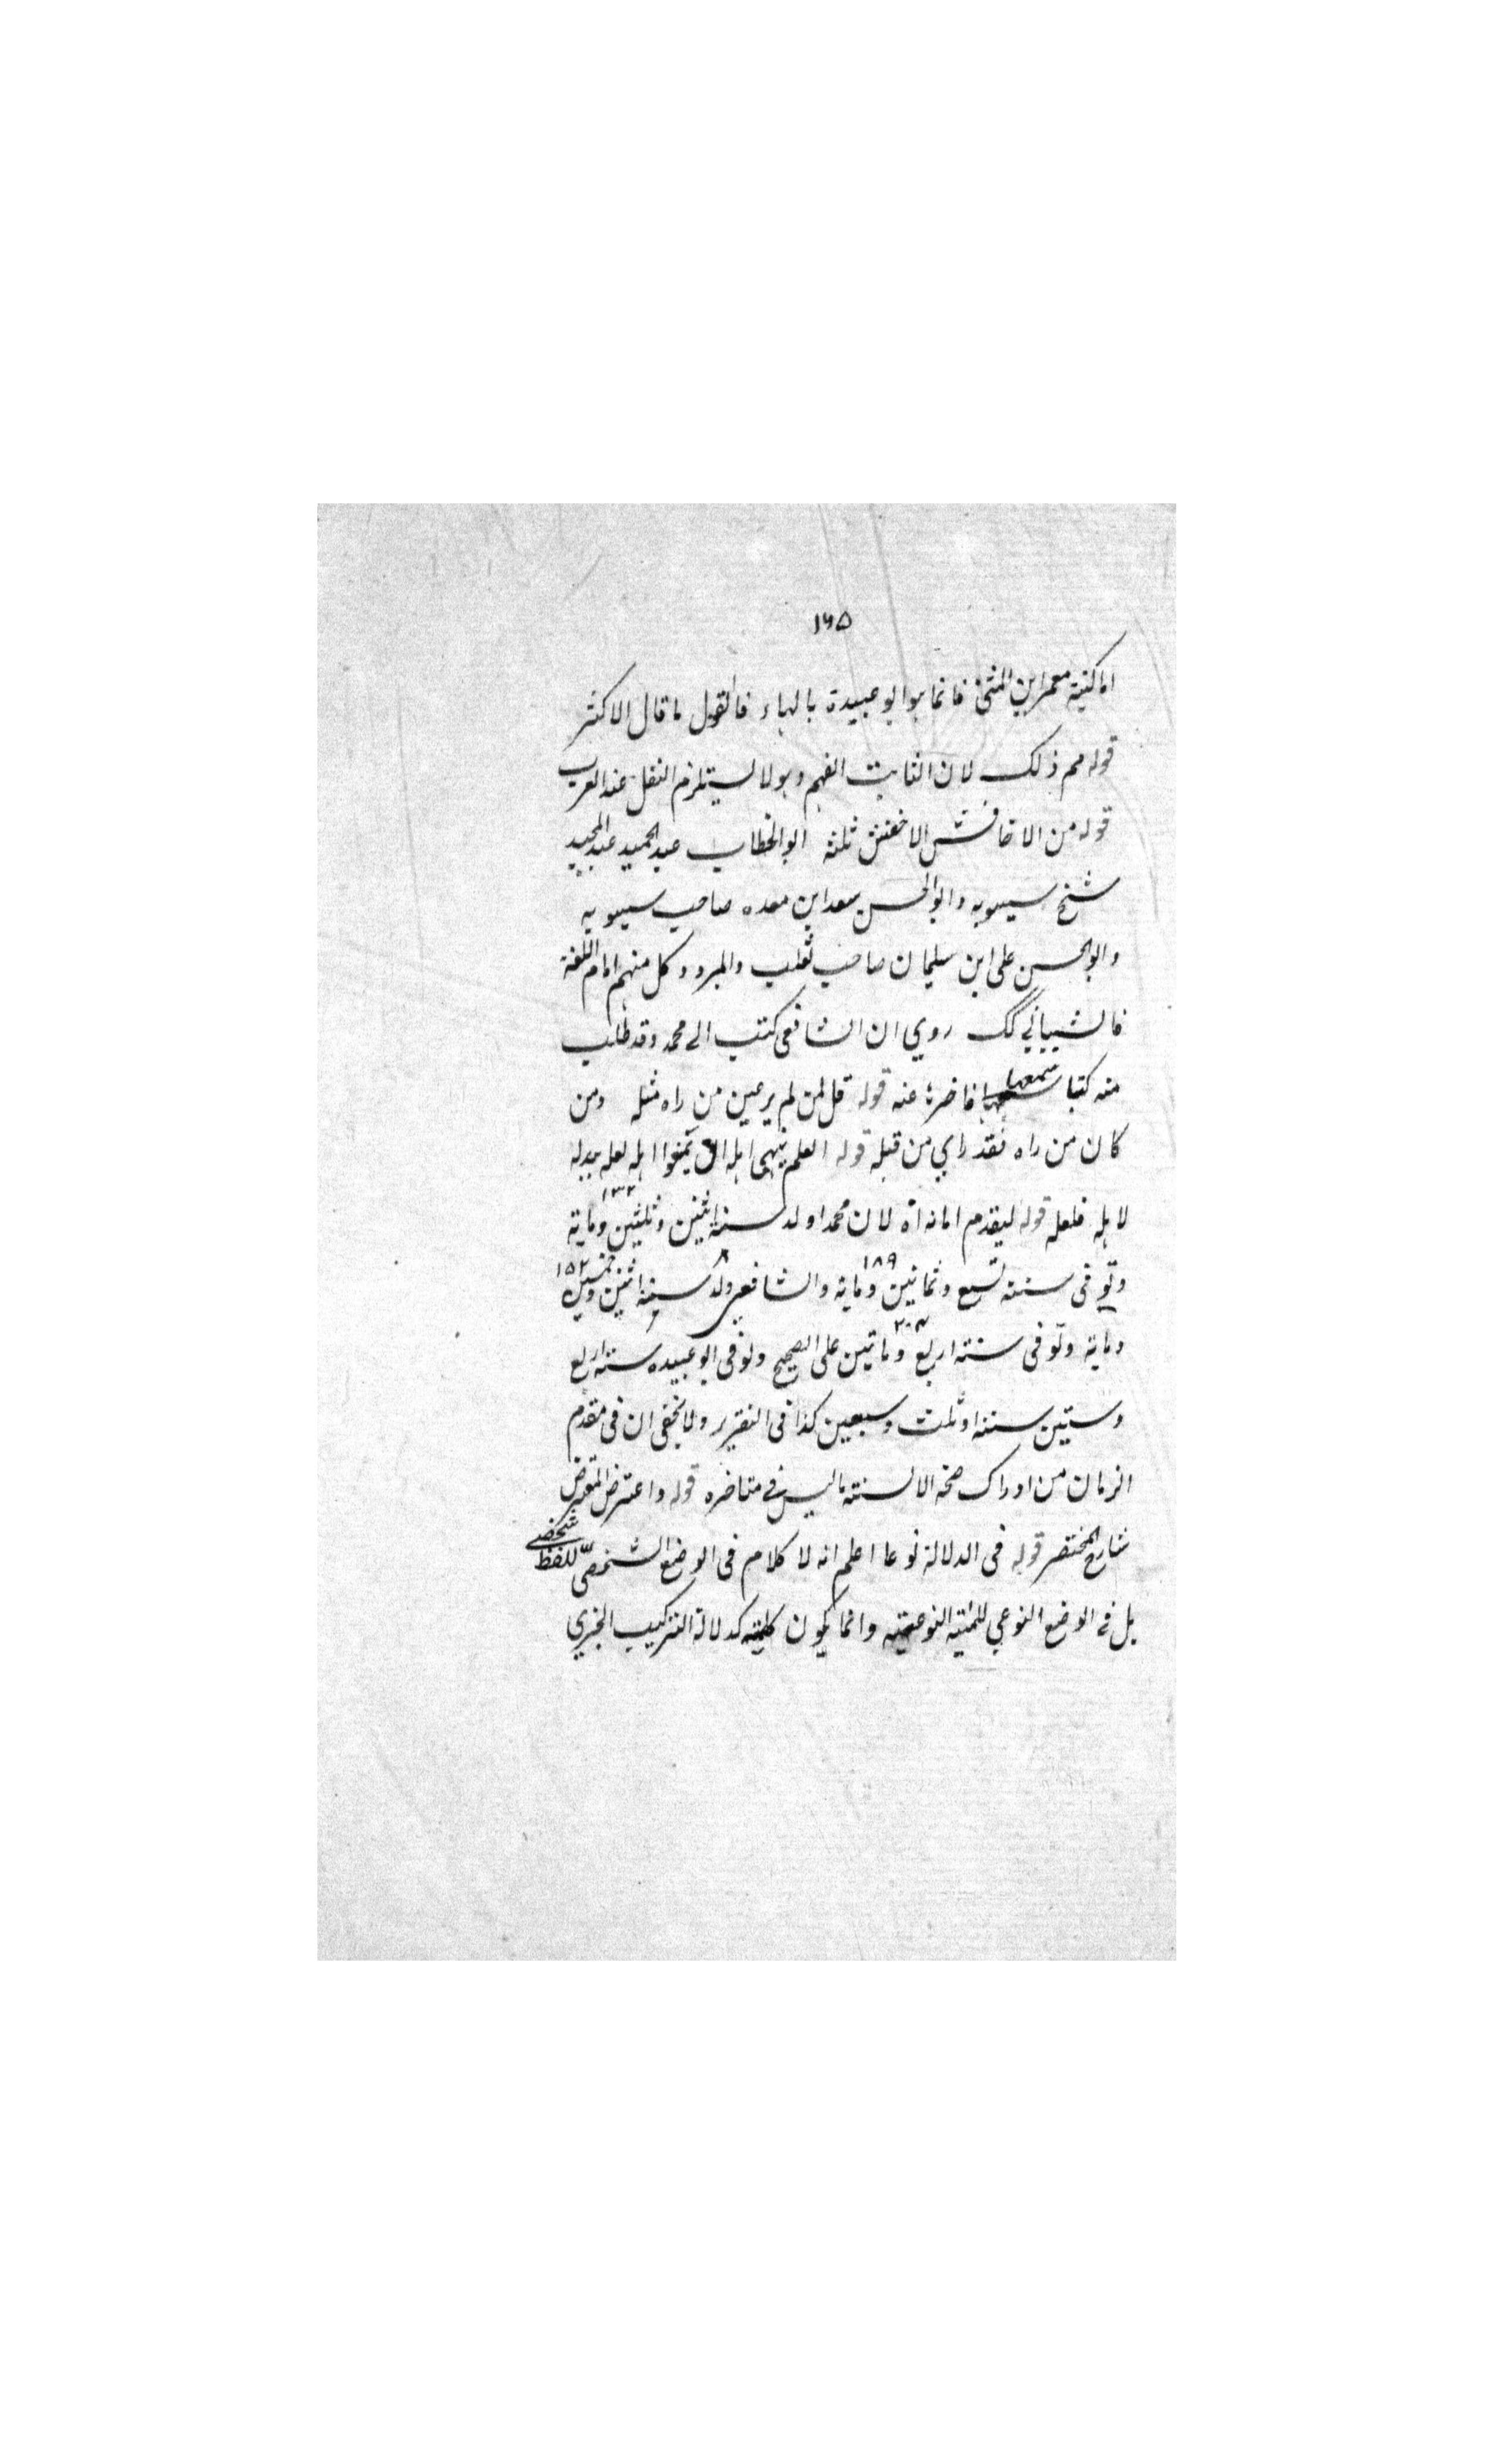 ١٦٥
اما كنية معمر ابن المثنى فانما هو ابو عبيدة بالهاء فالقول ما قال الاكثر
قوله مم ذلك لان الثابت الفهم وهو لا يستلزم النقل عند العرب
قوله من الاخافش الاخفش ثلثة ابو الخطاب عبد الحميد عبد المجيد
شيخ سيبويه وابو الحسن سعد ابن معده صاحب سيبويه
وابو الحسن على ابن سليمان صاحب ثعلب والمبرد وكل منهم امام اللغة
فالشيباني كك روي ان الشافعى كتب الى محمد وقد طلب
منه كتبا فاخره عنه قوله قل لمن لم ير عين من راه مثله ومن
كان من راه فقد راي من قبله قوله العلم ينهى اهله ان يمنعوا اهله لعله ببدله
لاهله فلعله قوله ليقدم امانه اه لان محمدا ولد سنة اثنين وثلثين وماية ١٣٢
وتوفى سنة تسع وثمانين وماية ١٨٩ والشافعى ولد سنة اثنين وخمسين ١٥٢
وماية وتوفى سنة اربع وماتين ٢٠٤ على الصحيح وتوفى ابو عبيده سنة اربع
وستين سنة او ثلث وسبعين كذا فى التقرير ولا يخفى ان فى مقدم
الزمان من ادراك صحة الالسنة ما ليس في متاخره قوله واعترض المعترض
شارح المختصر قوله فى الدلالة نوعا اعلم انه لا كلام فى الوضع الشخصى للفظ شخصي
بل في الوضع النوعي النوعية وانما يكون كلية كدلالة التركيب الخبري